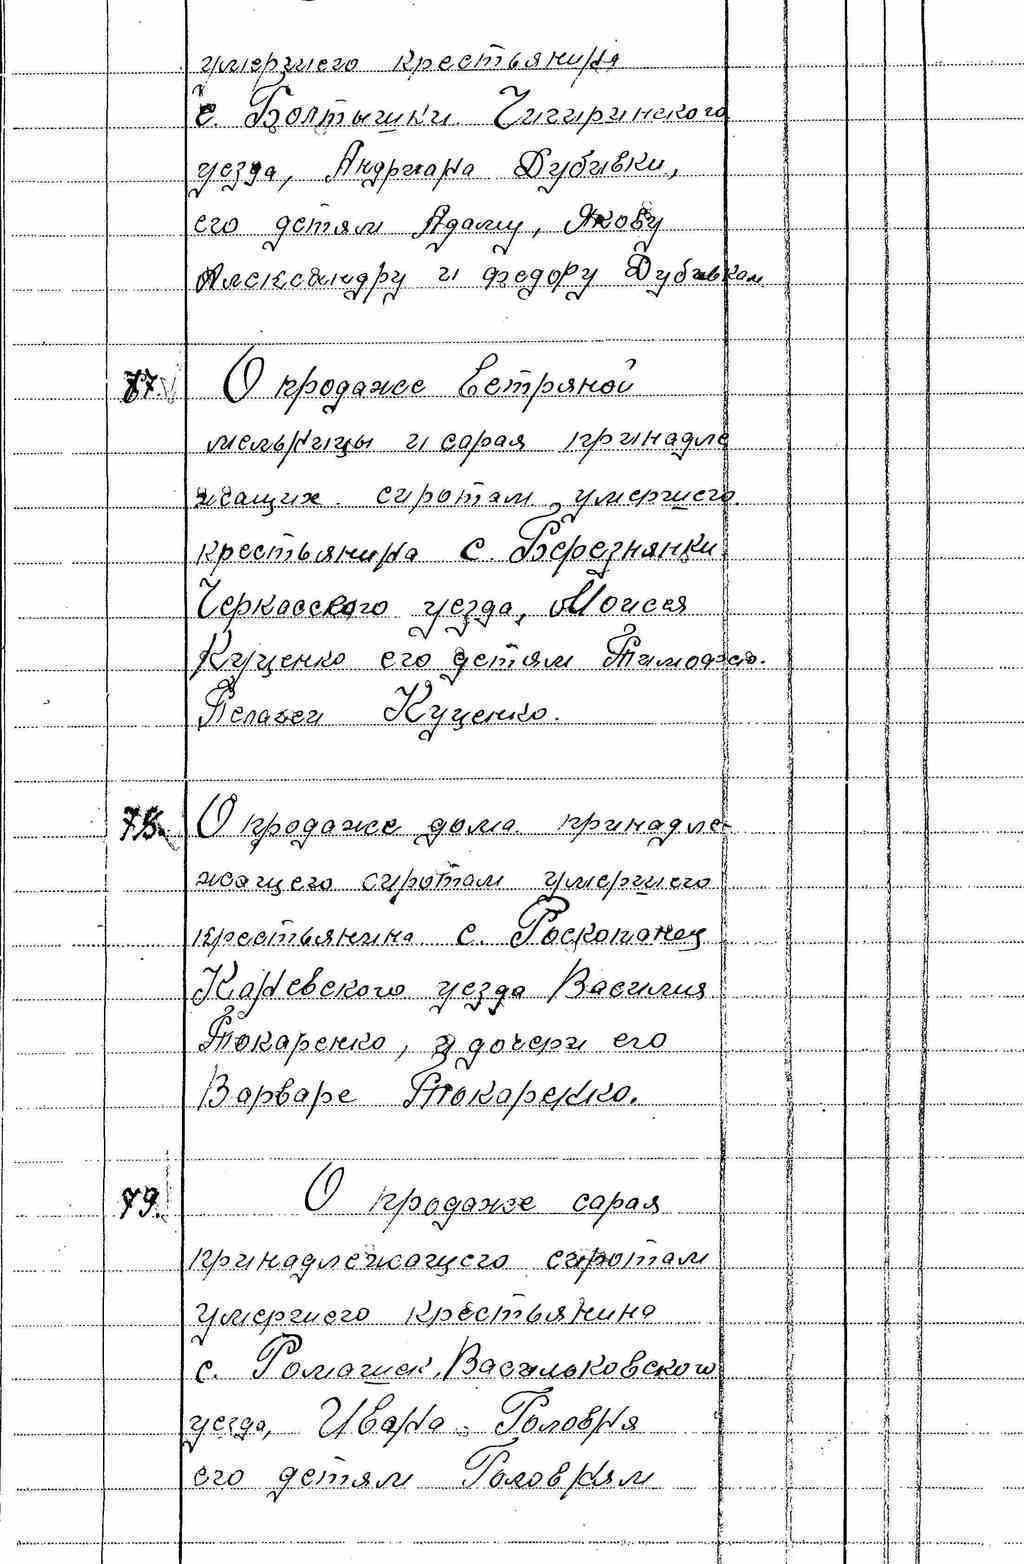 умершего крестьянина
с. Болтышки Чигиринского
уезда, Андриана Дубивки,
его детям Адаму, Якову
Александру и Федору Дубивкам
77. О продаже ветряной
мельницы и сарая принадле
жащих сиротам умершего
крестьянина с. Березнянки
Черкасского уезда, Моисея
Куценко его детям Тимофею.
Пелагеи Куценко.
78. О продаже дома принадле-
жащего сиротам умершего
крестьянина с. Роскопанец
Каневского уезда Василия
Токаренко, и дочери его
Варваре Токаренко.
79. О продаже сарая
принадлежащего сиротам
умершего крестьянина
с. Ромашек, Васильковского
уезда, Ивана Головня
его детям Головням